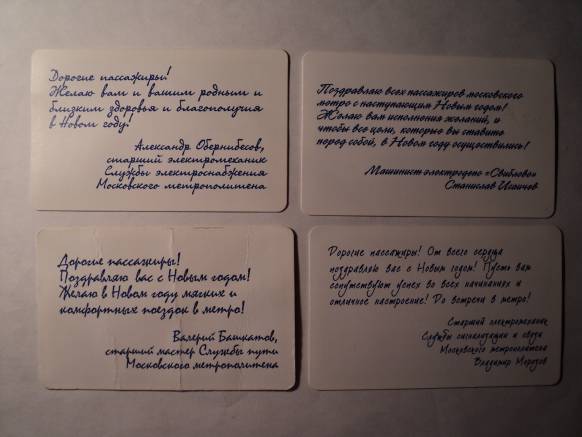 Дорогие пассажиры!
Желаю вам и вашим родным и
близким здоровья и благополучия
в Новом году!
Александр Обернибесов,
старший электромеханик
Службы электроснабжения
Московского метрополитена
Поздравляю всех пассажиров московского
метро с наступающим Новым годом!
Желаю вам исполнения желаний, и
чтобы все цели, которые вы ставите
перед собой, в Новом году осуществились!
Машинист электродепо «Свиблово»
Станислав
Дорогие пассажиры!
Поздравляю вас с Новым годом!
Желаю в Новом году мягких и
комфортных поездок в метро!
Валерий Башкатов,
старший мастер Службы пути
Московского метрополитена
Дорогие пассажиры! От всего сердца
поздравляю вас с Новым годом! Пусть вам
сопутствуют успех во всех начинаниях и
отличное настроение! До встречи в метро!
Старший электромеханик
Службы сигнализации и связи
Московского метрополитена
Владимир Морозов